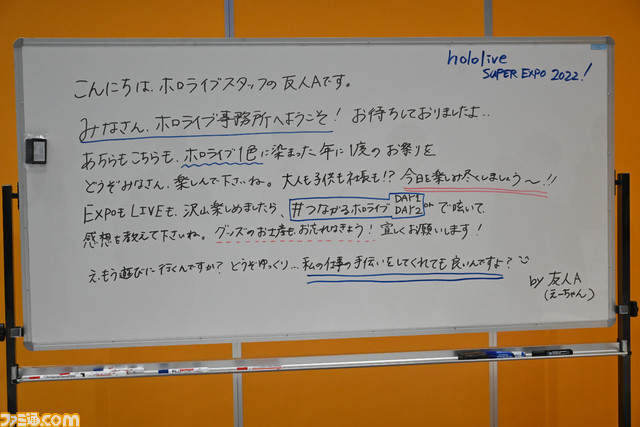 hololive
SUPER EXPO 2022!
こんにちは、ホロライブスタッフの友人Aです。
みなさん、ホロライブ事務所へようこそ! お待ちしておりましたよ..
あちらもこちらも、ホロライブ1色に染まった年に1度のお祭りを
どうぞみなさん、楽しんで下さいね。大人も子供も社長も!? 今日を楽しみ尽くしましょう〜!!
EXPOもLIVEも、沢山楽しめましたら、#つながるホロライブ DAY1 or DAY2 で呟いて、
感想を教えて下さいね。グッズのお土産もお忘れなきよう! 宜しくお願いします!
え、もう遊びに行くんですか? どうぞゆっくり…私の仕事の手伝いをしてくれても良いんですよ?
by 友人A
(えーちゃん)
ファミ通.com